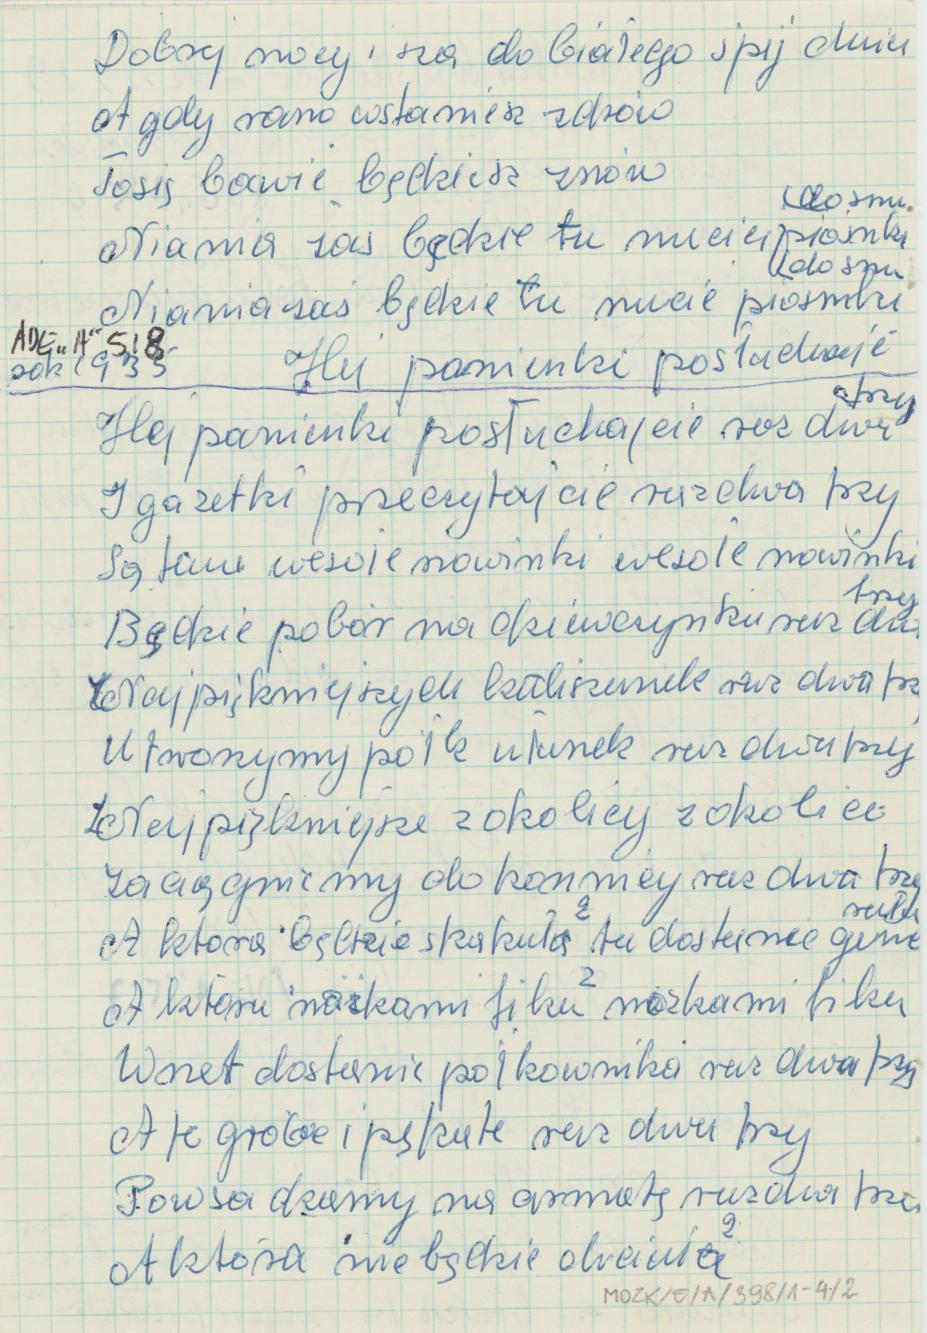 Dobrej nocy i sza do białego śpij dniu
A gdy rano wstaniesz zdrów
To się bawić będziesz znów
do snu
Niania zaś będzie tu nucić piosnki
do snu
Niania zaś będzie tu nucić piosnki
ADE "A" 518
rok 1935 Hej panienki posłuchajcie
trzy
Hej panienki posłuchajcie raz dwa
I gazetki przeczytajcie raz dwa trzy
Są tam wesołe nowinki wesołe nowinki
trzy
Będzie pobór na dziewczynki raz dwa
Z Najpiękniejszych kaliszanek raz dwa trz
Utworzymy półk ułanek raz dwa trzy
Z Najpiękniejsze z okolicy z okolice
Zaciągniemy do konnicy raz dwa trzy
A która będzie skakała 2 ta dostanie gene
rała
A która nóżkami fika 2 nóżkami fika
Wnet dostanie półkownika raz dwa trzy
A te grube i pękate raz dwa trzy
Powsadzamy na armatę raz dwa trz
A która nie będzie chciała 2
MOZK/E/A/398/1-4/2